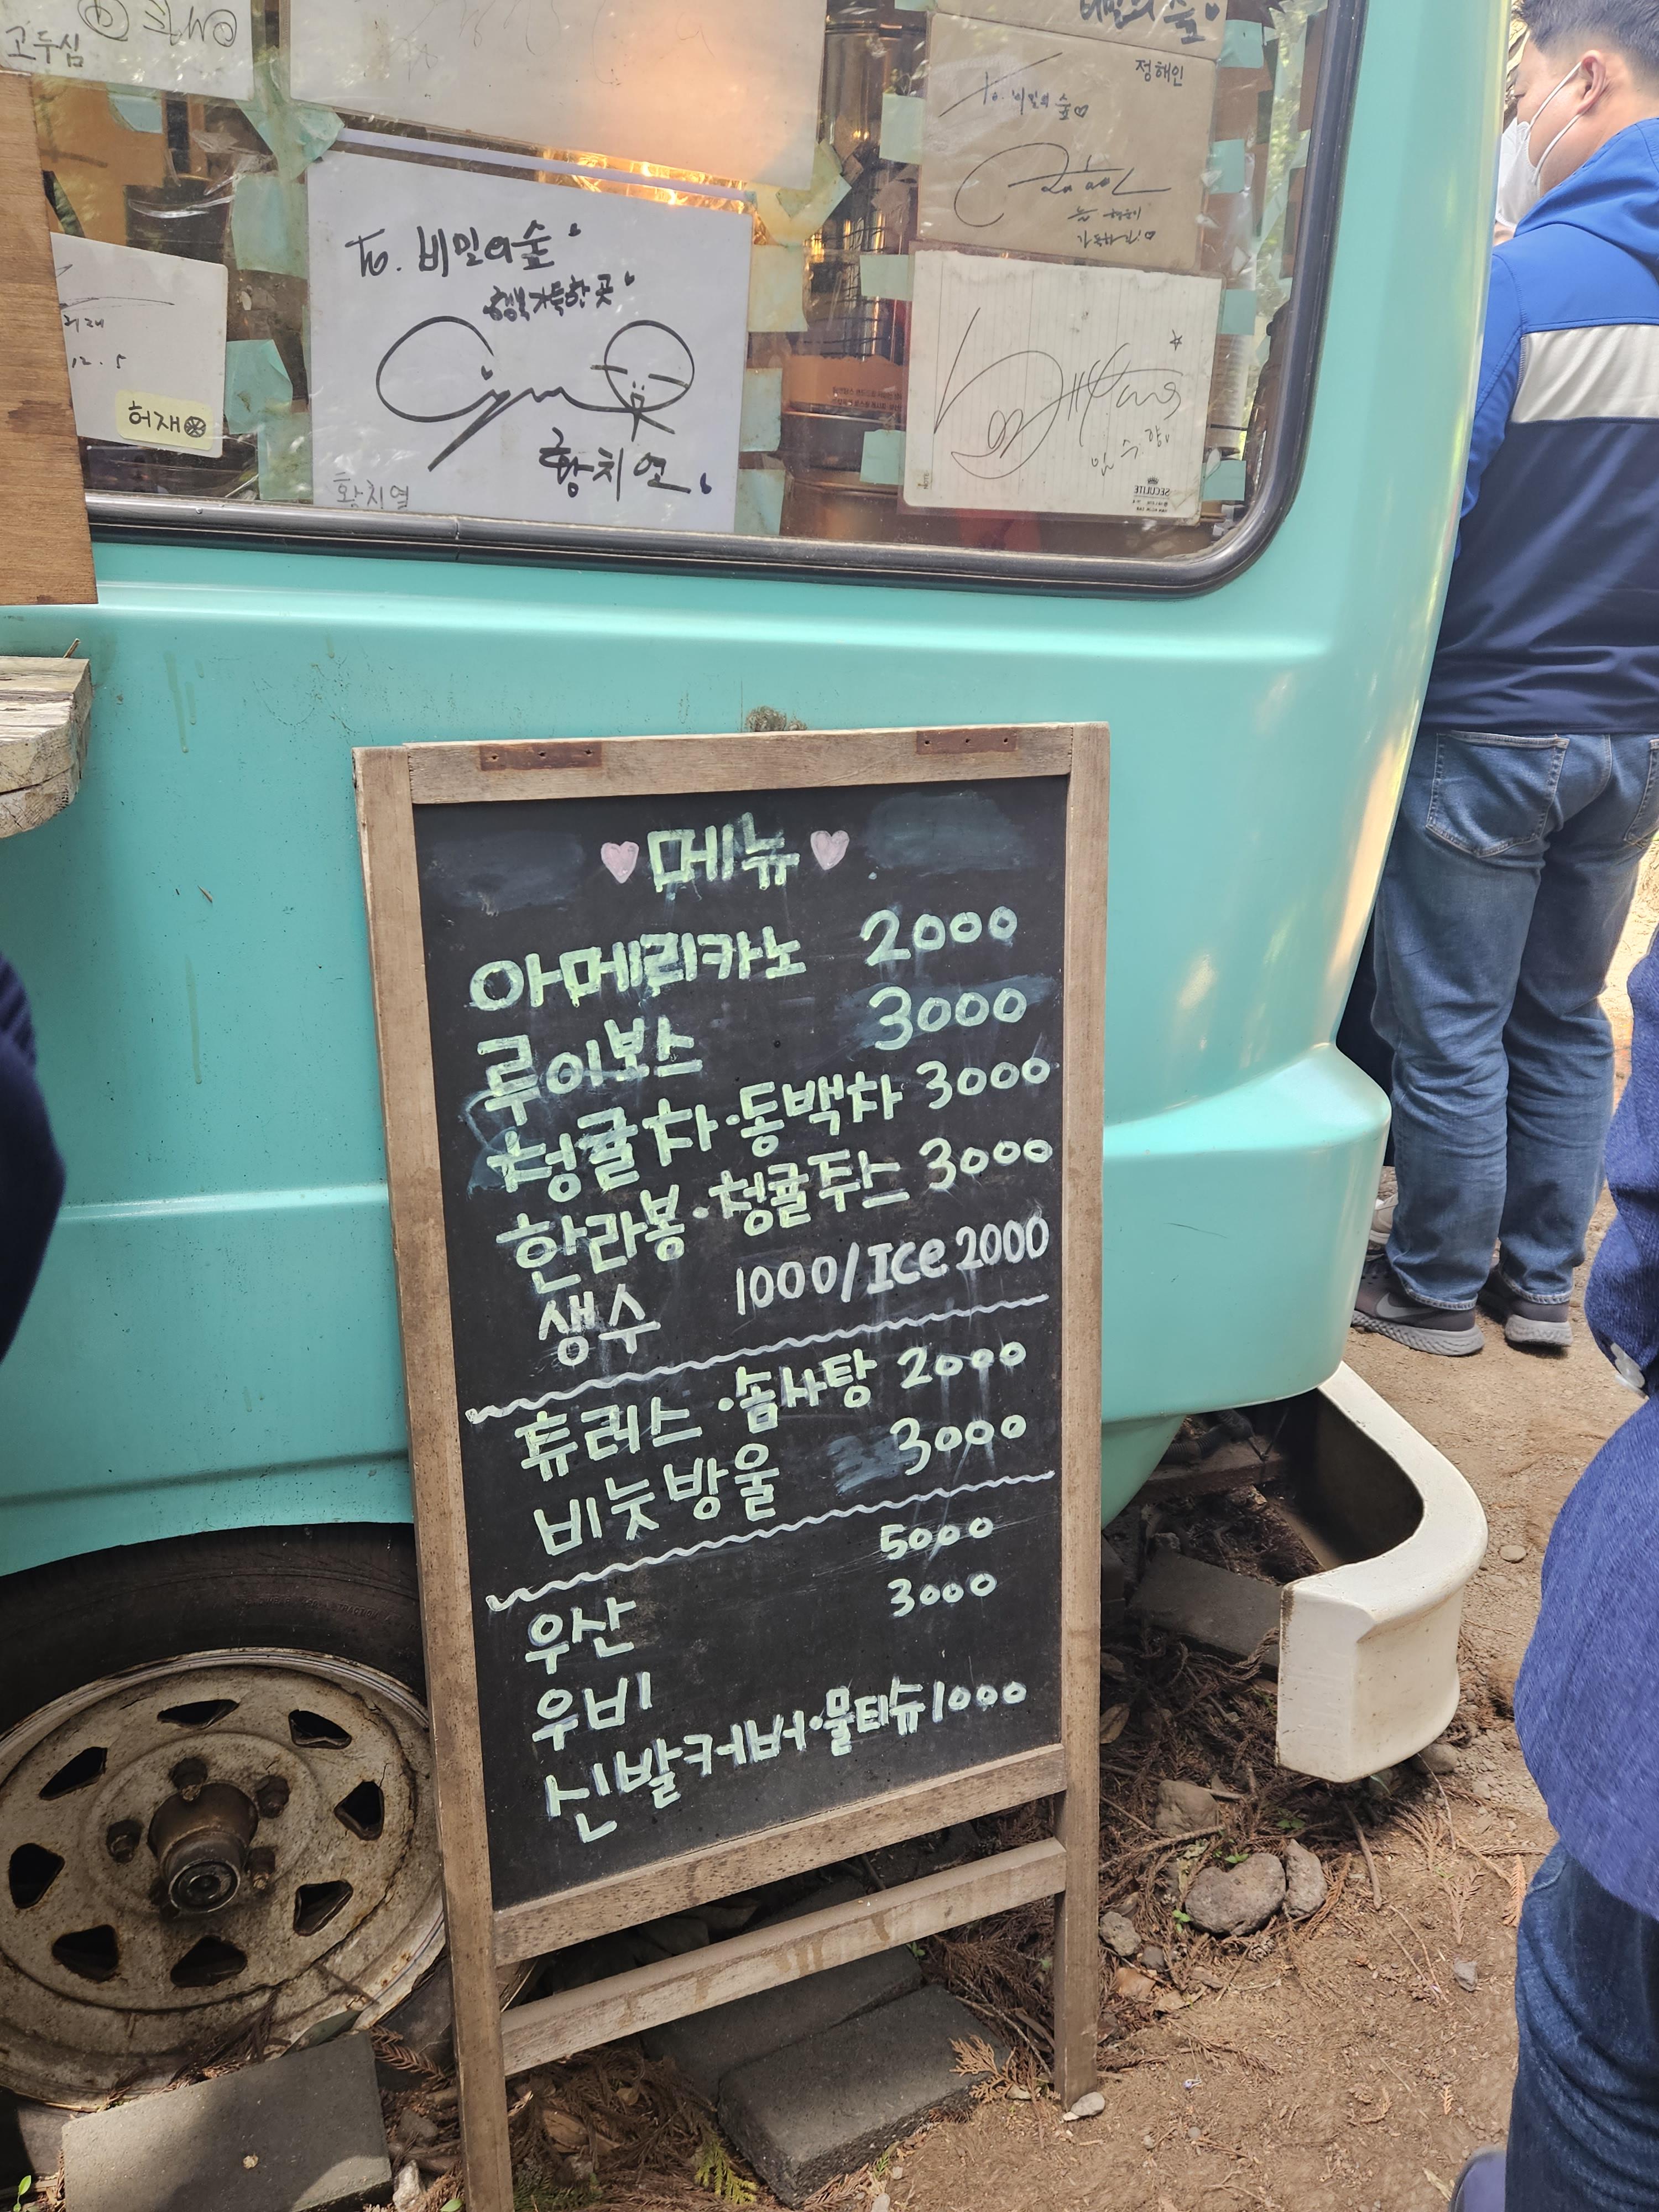 고두심
비밀의 숲
정해인
To. 비밀의 숲♡
To. 비밀의 숲
행복 가득한 곳
황치열
황치열
12. 5
허재
임수향
SECULITE
♥메뉴♥
아메리카노 2000
루이보스 3000
청귤차·동백차 3000
한라봉·청귤쥬스 3000
생수 1000/Ice 2000
츄러스·솜사탕 2000
비눗방울 3000
우산 5000
우비 3000
신발커버·물티슈 1000